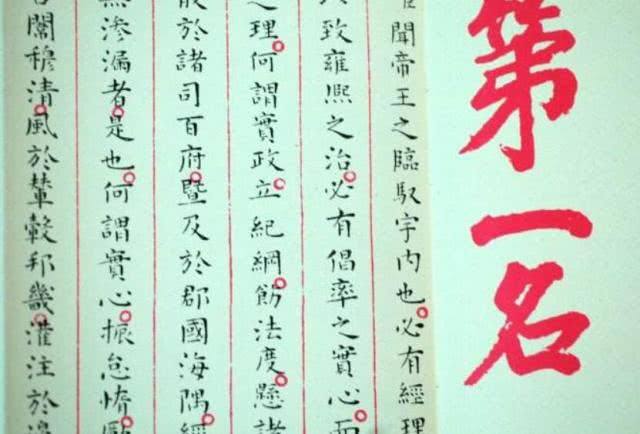 第一名
臣聞帝王之臨馭宇內也必有經理
以致雍熙之治必有倡率之實心而
之理何謂實政立紀綱飭法度懸諸
散於諸司百府暨及於郡國海隅經
無滲漏者是也何謂實心振怠惰勵
闈穆清風於輦轂邦畿灌注於邊